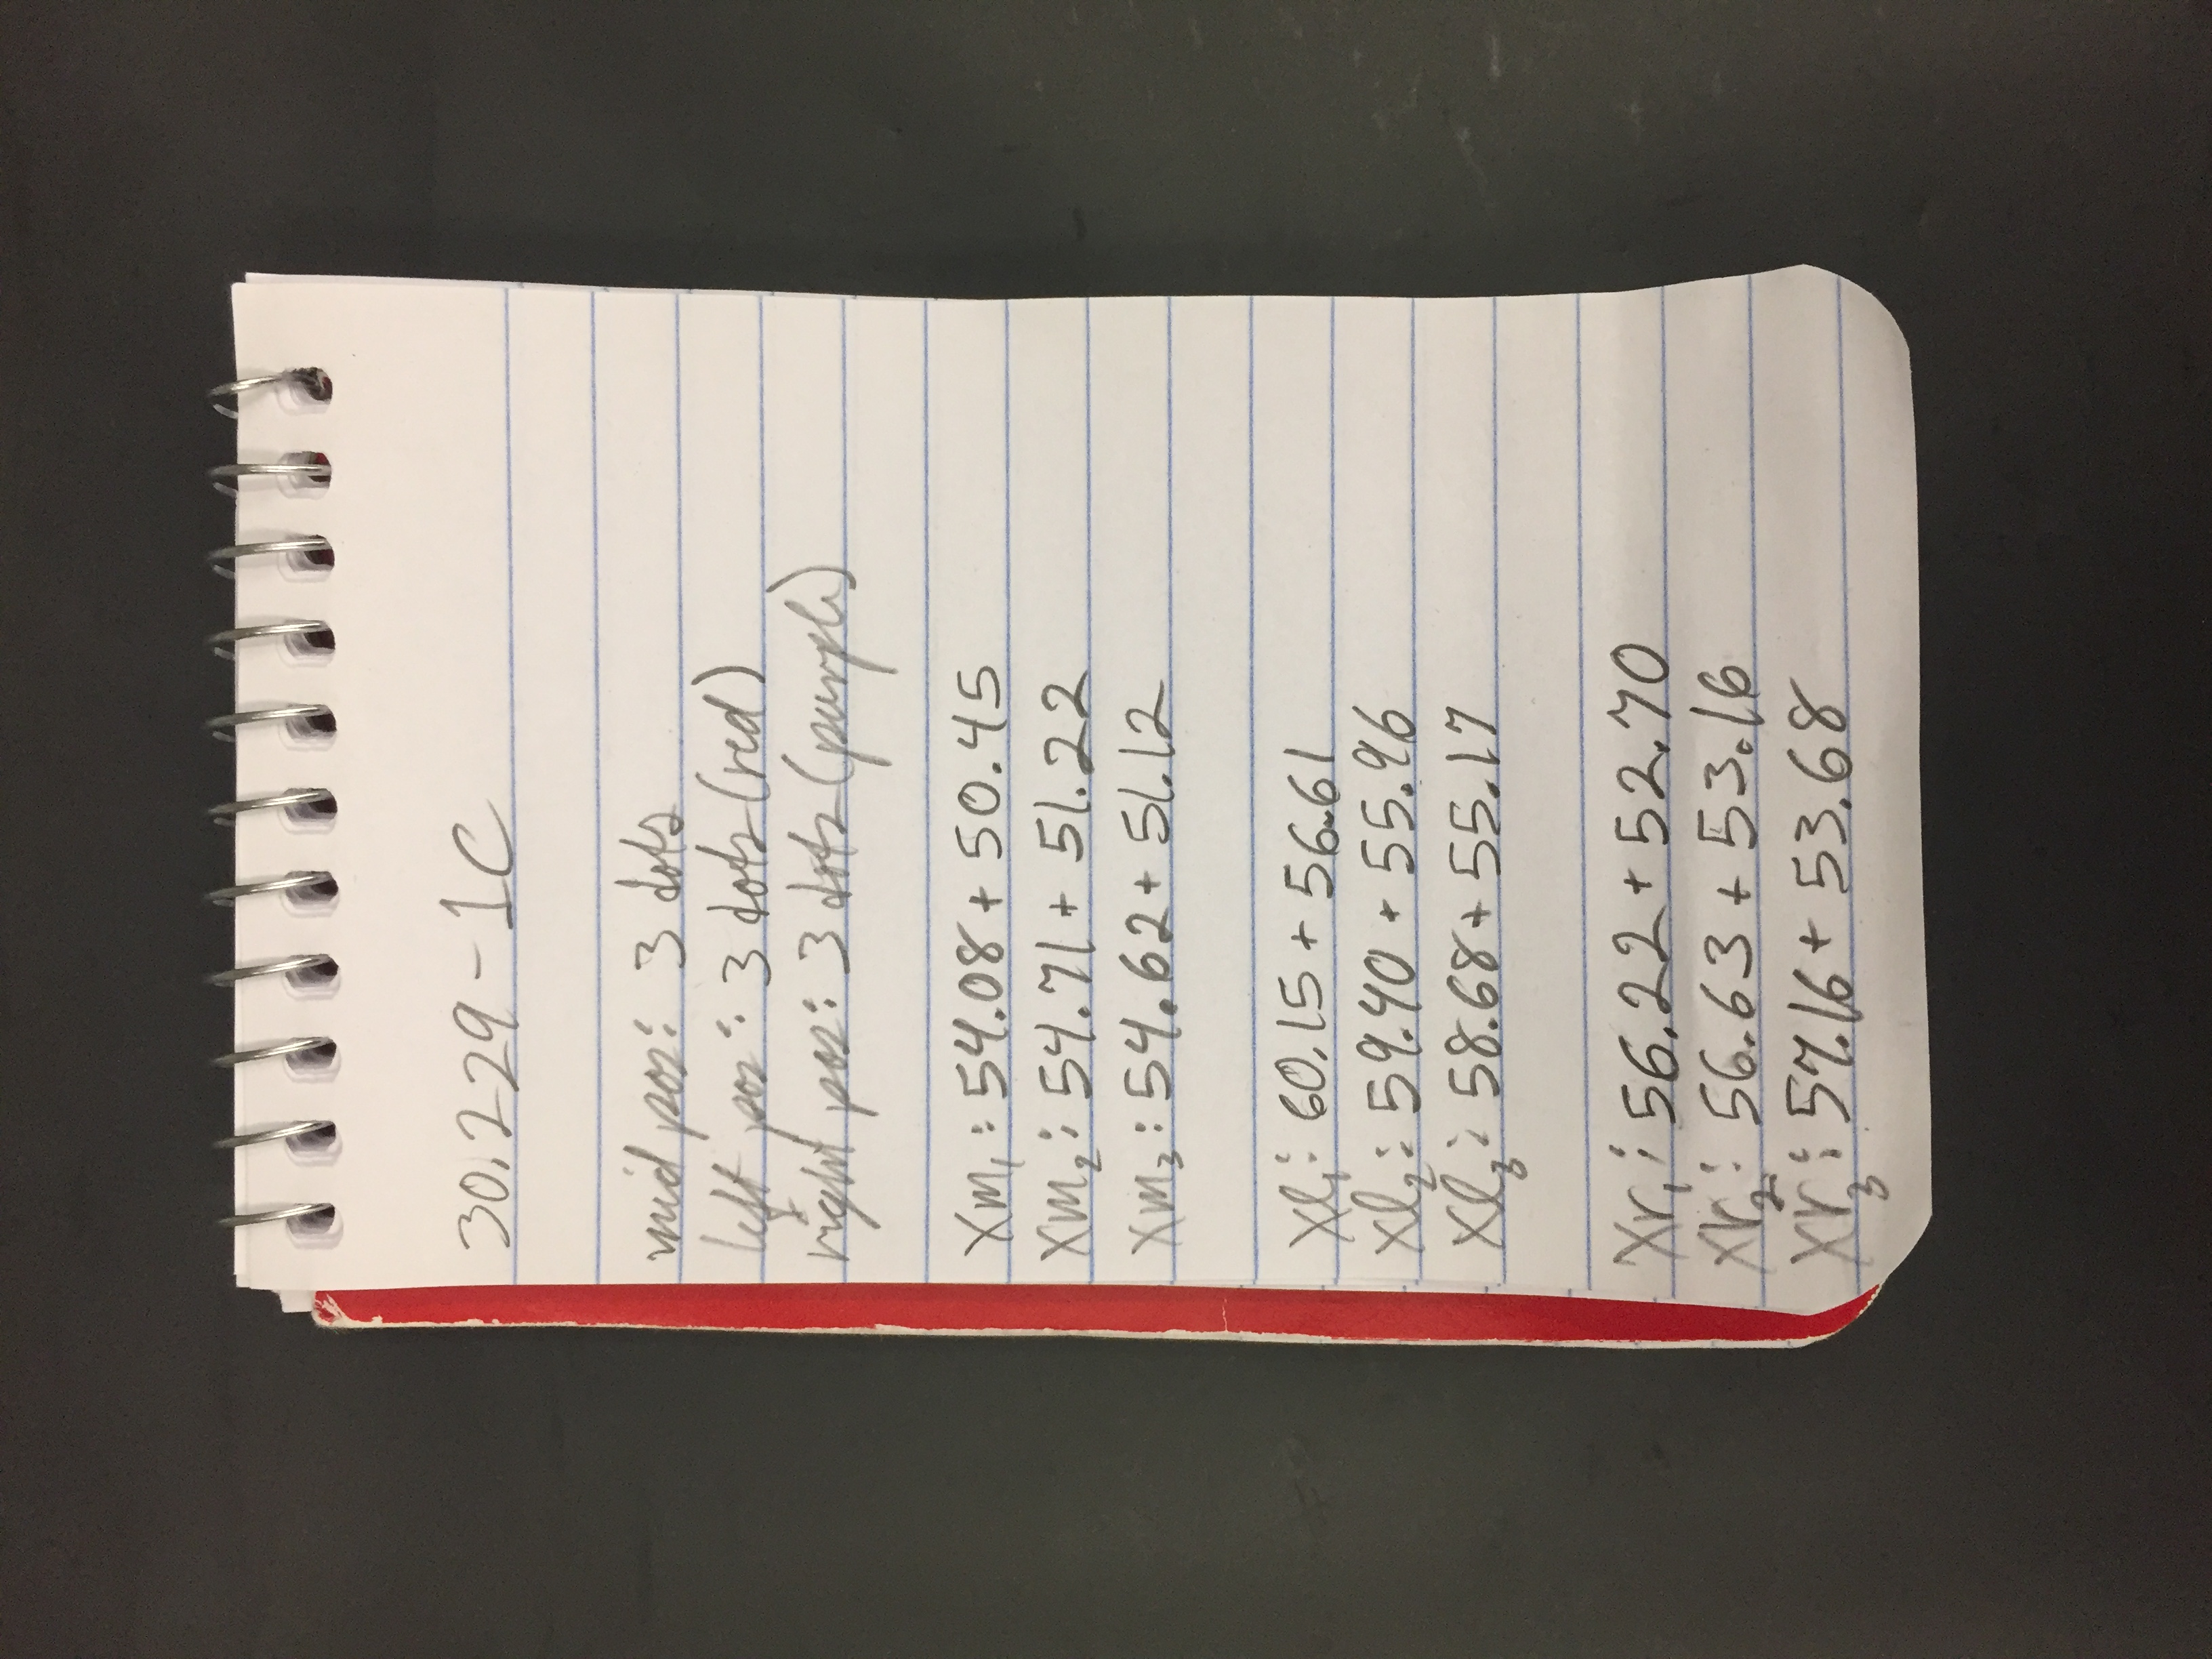 30.229-1C
mid pos: 3 dots
left pos: 3 dots (red)
right pos: 3 dots (purple)
Xm₁: 54.08 + 50.45
Xm₂: 54.71 + 51.22
Xm₃: 54.62 + 51.12
Xl₁: 60.15 + 56.61
Xl₂: 59.40 + 55.96
Xl₃: 58.68 + 55.17
Xr₁: 56.22 + 52.70
Xr₂: 56.63 + 53.16
Xr₃: 57.16 + 53.68